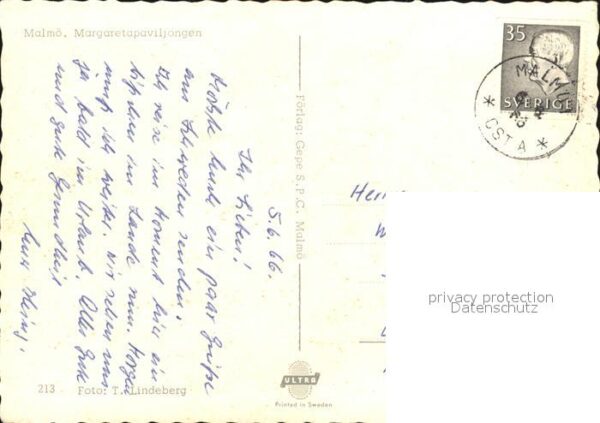 Malmö. Margaretapaviljongen
5.6.66.
Ihr Lieben!
Möchte heute ein paar Grüße
aus Schweden senden.
Ich reise im Moment hier ein
bißchen im Lande rum. Morgen
muß ich weiter. Wir sehen uns
ja bald im Urlaub. Alles Gute
und gute Gesundheit
Förlag: Gepe S.P.C. Malmö
213 Foto: T. Lindeberg
ULTRA
Printed in Sweden
35
SVERIGE
MALMÖ
ÖST A
privacy protection
Datenschutz